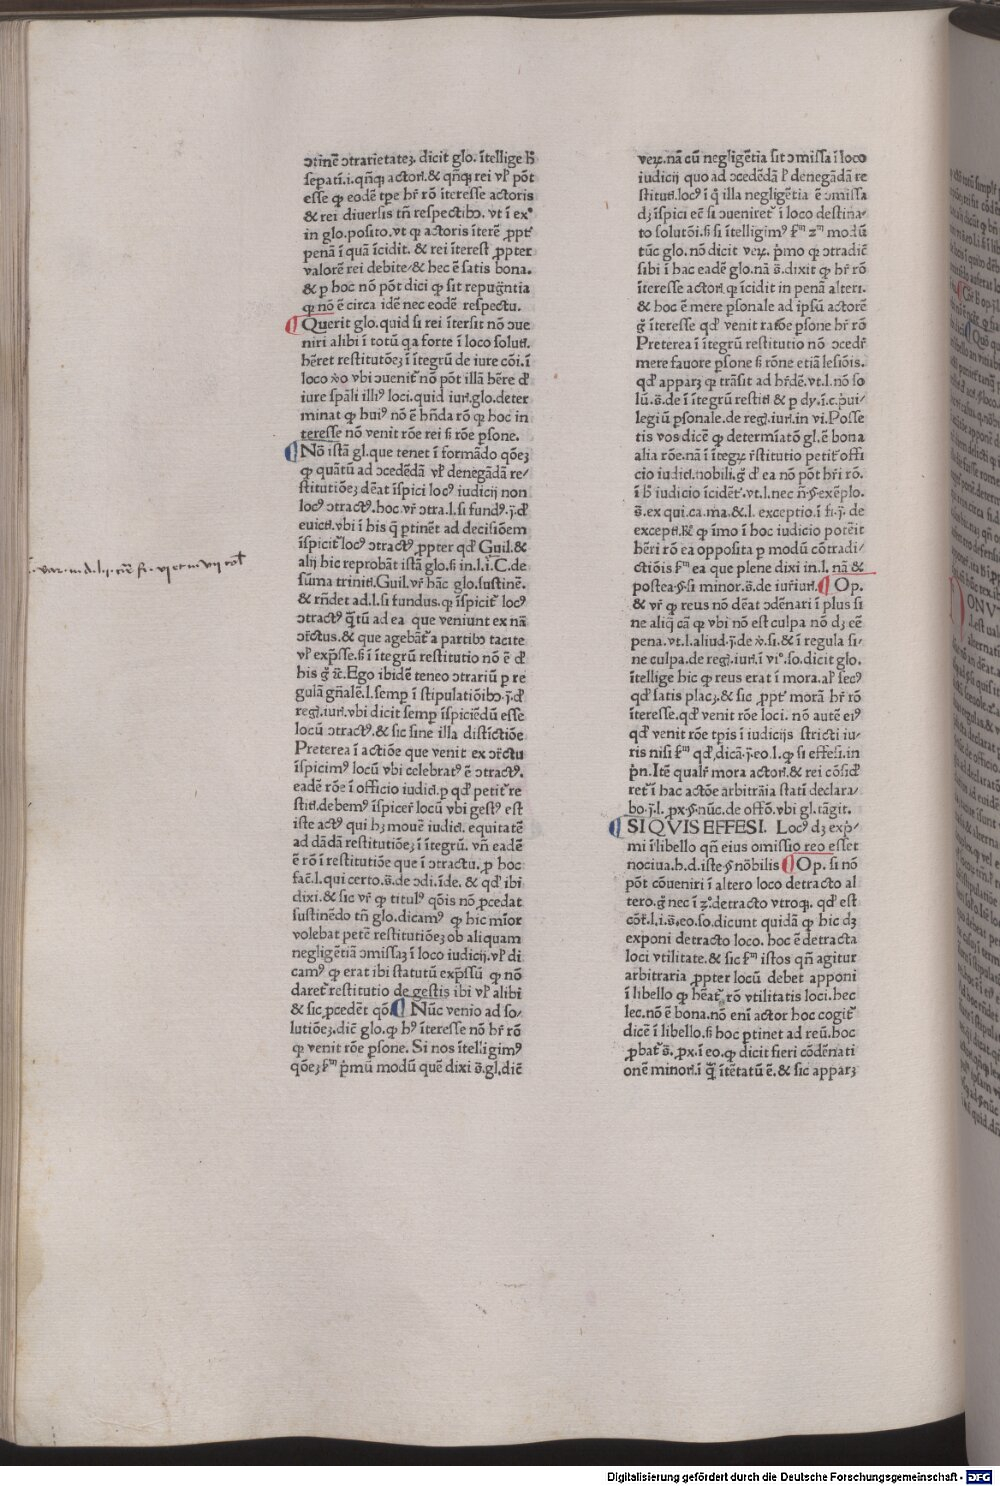 ɔtinē ɔtrarietateꝫ. dicit glo. ītellige ħ
sepati.i.qñqꝫ actori.& qñqꝫ rei vƚ pōt
esse ꝙ eodē tꝑe hr̄ rō īteresse actoris
& rei diuersis tn̄ respectibꝯ. vt ī ex°
in glo. posito. vt ꝙ actoris īterē ꝓpt̄
penā ī quā īcidit. & rei īterest ꝓpter
valorē rei debite/& hec ē satis bona.
& p hoc nō pōt dici ꝙ sit repuḡntia
ꝙ nō ē circa idē nec eodē respectu.
Querit glo. quid si rei ītersit nō ɔue
niri alibi ī totū qa forte ī loco soluti.
hēret restitutōeꝫ ī ītegrū de iure cōi.ī
loco ꝟo vbi ɔuenit̄ nō pōt illā hēre đ
iure sp̄ali illiꝰ loci. quid iuri. glo. deter
minat ꝙ huiꝰ nō ē hn̄da rō ꝙ hoc in
teresse nō venit rōe rei s̄ rōe ꝑsone.
Nō istā gl. que tenet ī formādo qōeꝫ
ꝙ quātū ad ɔcedēdā vƚ denegādā re/
stitutiōeꝫ dēat īspici locꝰ iudicij non
locꝰ ɔtractꝰ. hoc. vr̄ ɔtra.l.si fundꝰ.j.đ
euicti. vbi ī his q̄ ptinēt ad decisiōem
īspicit̄ locꝰ ɔtractꝰ ꝓpter qđ Guil. &
alij hic reprobāt istā glo. s̄ in.l.i. C. de
sūma triniti. Guil. vr̄ hāc glo. sustinē.
& rn̄det ad.l.si fundus. ꝙ īspicit̄ locꝰ
ɔtractꝰ q̄tū ad ea que veniunt ex nā
ɔtr̄ctus. & que agebāt̄ a partibꝯ tacite
vƚ exp̄sse. s̄ ī ītegrū restitutio nō ē đ
his ḡ ⁊c̄. Ego ibidē teneo ɔtrariū p re
gulā gn̄alē.l. semp ī stipulatiōibꝯ.j.đ
regƚ. iuri. vbi dicit semp īspiciēdū esse
locū ɔtractꝰ. & sic sine illa distīctiōe
Preterea ī actiōe que venit ex ɔtr̄ctu
īspicimꝰ locū vbi celebratꝰ ē ɔtractꝰ.
eadē rōe ī officio iudici. p qđ petit̄ re
stiti. debemꝰ īspicer̄ locū vbi gestꝰ est
iste actꝰ qui hꝫ mouē iudici. equitatē
ad dādā restitutiōeꝫ ī ītegrū. vn̄ eadē
ē rō ī restitutiōe que ī ɔtractu. p hoc
facē.l. qui certo. s̄. de ɔdi. īde. & qđ ibi
dixi. & sic vr̄ ꝙ titulꝰ qōis nō ꝓcedat
sustinēdo tn̄ glo. dicamꝰ ꝙ hic mīor
volebat petē restitutiōeꝫ ob aliquam
negligētiā ɔmissaꝫ ī loco iudicij. vƚ di
camꝰ ꝙ erat ibi statutū exp̄ssū ꝙ nō
daret̄ restitutio de gestis ibi vƚ alibi
& sic ꝓcedēt qō. Nūc venio ad so/
lutiōeꝫ. dicē glo. ꝙ hꝰ īteresse nō hr̄ rō
ꝙ venit rōe ꝑsone. Si nos ītelligimꝰ
qōeꝫ ẜm pͥmū modū quē dixi s̄. gl. dicē
veꝝ. nā cū negligētia sit ɔmissa ī loco
iudicij quo ad ɔcedēdā ƚ denegādā re
stituti. locꝰ ī q̄ illa negligētia ē ɔmissa
dꝫ īspici eē si ɔueniret̄ ī loco destina/
to solutōi. s̄ si ītelligimꝰ ẜm zm modū
tūc glo. nō dicit veꝝ. pͥmo ꝙ ɔtradic̄
sibi ī hac eadē glo. nā s̄. dixit ꝙ hr̄ rō
īteresse actori. ꝙ īcidit in penā alteri.
& hoc ē mere ꝑsonale ad ipsū actorē
ḡ īteresse qđ venit ratiōe ꝑsone hr̄ rō
Preterea ī ītegrū restitutio nō ɔcedr̄
mere fauore ꝑsone s̄ rōne etiā lesiōis.
qđ apparꝫ ꝙ trāsit ad hr̄dē. vt.l. nō so
lū. s̄. de ī ītegrū restiti & p dy.ī.c. pͥui/
legiū ꝑsonale. de regƚ. iuri. in vi. Posse
tis vos dicē ꝙ determīatō gl. ē bona
alia rōe. nā ī ītegꝝ r̄stitutio petit̄ offi
cio iudici. nobili. ḡ đ ea nō pōt hr̄i rō.
ī ħ iudicio īcidēt̄. vt.l. nec n̄.§. exēplo.
s̄. ex qui. ca. ma. &.l. exceptio. ī fi.j. de
excepti. R̄ ꝙ īmo ī hoc iudicio potēit
hēri rō ea opposita p modū cōtradi/
ctiōis ẜm ea que plene dixi in.l. nā &
postea.§. si minor. s̄. de iur̄iuri. Op.
& vr̄ ꝙ reus nō dēat ɔdēnari ī plus si
ne aliq̄ cā ꝙ vbi nō est culpa nō dꝫ eē
pena. vt.l. aliud.j. de ꝟ. si. & ī regula si/
ne culpa. de regƚ. iuri. ī vi°. so. dicit glo.
ītellige hic ꝙ reus erat ī mora. aƚ secꝰ
qđ satis placꝫ. & sic ꝓpt̄ morā hr̄ rō
īteresse. qđ venit rōe loci. nō autē eiꝰ
qđ venit rōe tpis ī iudicijs stricti iu/
ris nisi ẜm qđ. dicā.j. eo.l. ꝙ si effesi. in
pͥn. Itē qualr̄ mora actori. & rei cōsid̄
ret̄ ī hac actōe arbitrāia stati declara/
bo.j.l. px.§. nūc. de offō. vbi gl. tāgit.
SI QVIS EFFESI. Locꝰ dꝫ exp̄/
mi ī libello qn̄ eius omissio reo esset
nociua. h. d. iste § nōbilis Op. si nō
pōt cōueniri ī altero loco detracto al
tero. ḡ nec ī z°. detracto vtroqꝫ. qđ est
cōt̄.l.i. s̄. eo. so. dicunt quidā ꝙ hic dꝫ
exponi detracto loco. hoc ē detracta
loci vtilitate. & sic ẜm istos qn̄ agitur
arbitraria ꝓpter locū debet apponi
ī libello ꝙ hēat̄ rō vtilitatis loci. hec
lec. nō ē bona. nō eni actor hoc cogit̄
dicē ī libello. s̄ hoc ptinet ad reū. hoc
ꝓbat̄ s̄. px. ī eo. ꝙ dicit fieri cōdēnati
onē minori. ī q̄ ītētatū ē. & sic apparꝫ
Digitalisierung gefördert durch die Deutsche Forschungsgemeinschaft - DFG